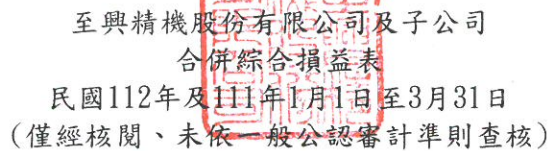 至興精機股份有限公司及子公司
合併綜合損益表
民國112年及111年1月1日至3月31日
(僅經核閱、未依一般公認審計準則查核)